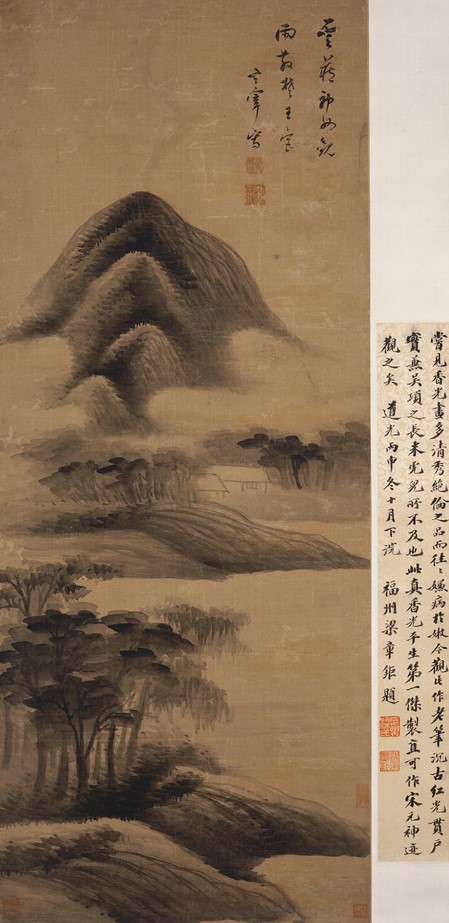 雲藏神女館
雨到楚王宮
玄宰寫
嘗見香光畫多清秀絕倫之品而往々嫌病於嫩今觀此作老筆沉古紅光貫戶
實兼項之長米虎兒所不及也此真香光平生第一傑製直可作宋元神迹
觀之矣 道光丙申冬十月下浣 福州梁章鉅題